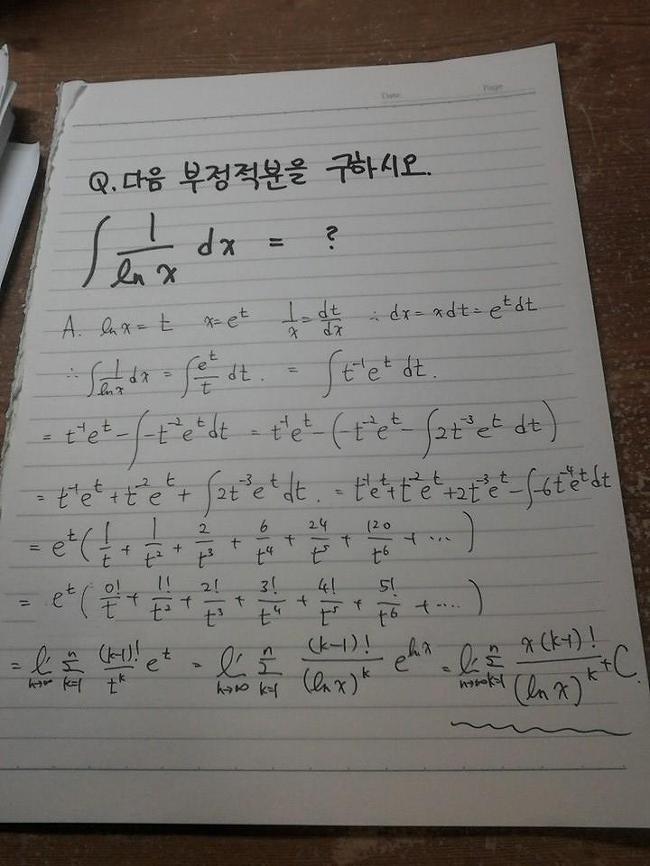 Date Page
Q. 다음 부정적분을 구하시오.
∫ 1/(ln x) dx = ?
A. ln x = t x = e^t 1/x = dt/dx ∴ dx = x dt = e^t dt
∴ ∫ 1/(ln x) dx = ∫ e^t/t dt. = ∫ t^-1 e^t dt.
= t^-1 e^t - ∫ -t^-2 e^t dt = t^-1 e^t - (-t^-2 e^t - ∫ 2t^-3 e^t dt)
= t^-1 e^t + t^-2 e^t + ∫ 2t^-3 e^t dt. = t^-1 e^t + t^-2 e^t + 2t^-3 e^t - ∫ -6t^-4 e^t dt
= e^t (1/t + 1/t^2 + 2/t^3 + 6/t^4 + 24/t^5 + 120/t^6 + ...)
= e^t (0!/t + 1!/t^2 + 2!/t^3 + 3!/t^4 + 4!/t^5 + 5!/t^6 + ....)
= lim n→∞ Σ k=1 n (k-1)!/t^k e^t = lim n→∞ Σ k=1 n (k-1)!/(ln x)^k e^ln x = lim n→∞ Σ k=1 n x(k-1)!/(ln x)^k + C.